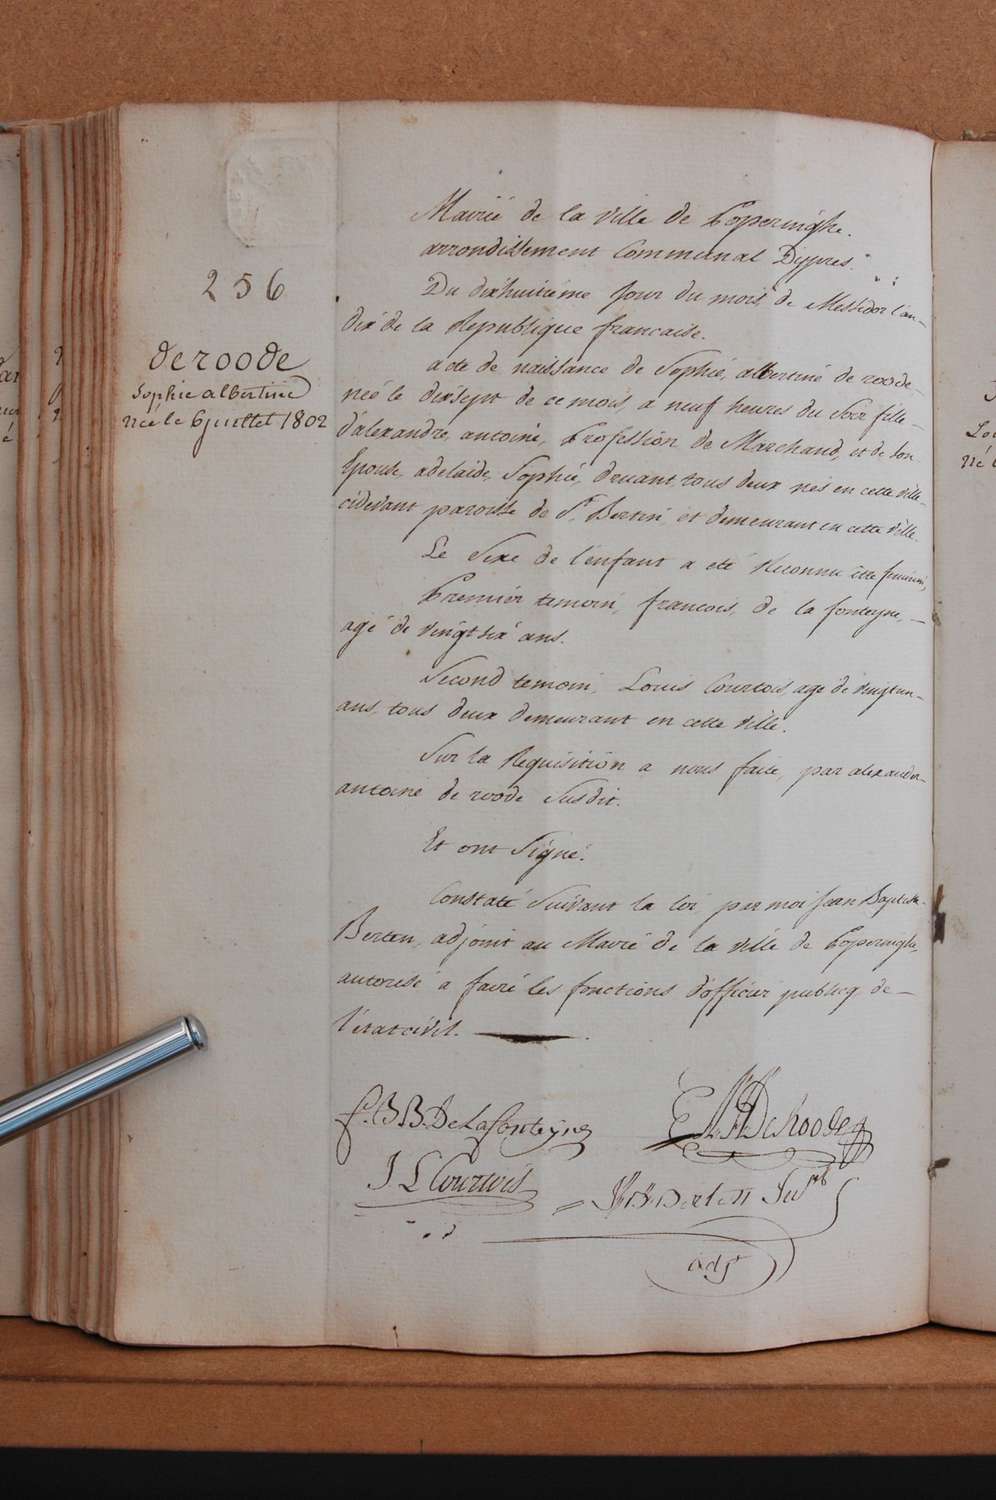 256
deroode
Sophie albertine
née le 6 juillet 1802
Mairié de la ville de Poperinghe.
arrondissement Communal Dypres.
Du dixhuitiéme jour du mois de Messidor l'an
dix de la Republique francaise.
acte de naissance de Sophié, albertiné de roode,
neé le dixsept de ce mois, a neuf heures du soir fille
d'alexandre, antoiné, Profession de Marchand, et de son
Epouse, adelaïde, Sophié, Druant, tous deux nés en cette ville
cidevant paroisse de St. Bertin, et demeurant en cette ville.
Le Sexe de l'enfant a eté Reconnu être feminin,
Premiér temoin, francois, de la fonteyne,
agé de vingt six ans.
Second temoin, Louis Courtois, age de vingt un
ans, tous deux demeurant en cette ville.
Sur la Requisition a nous faite, par alexander
antoiné de roode susdit.
Et ont signé.
Constaté suivant la loi, par moi Jean Baptiste
Berten, adjoint au Mairé de la ville de Poperinghe,
autorisé a fairé les fonctions d'officiér publicq de
l'étatcivil.
f. B B. DeLafonteyne
A A DeRoode
J L Courtois
J B Berten
adjt